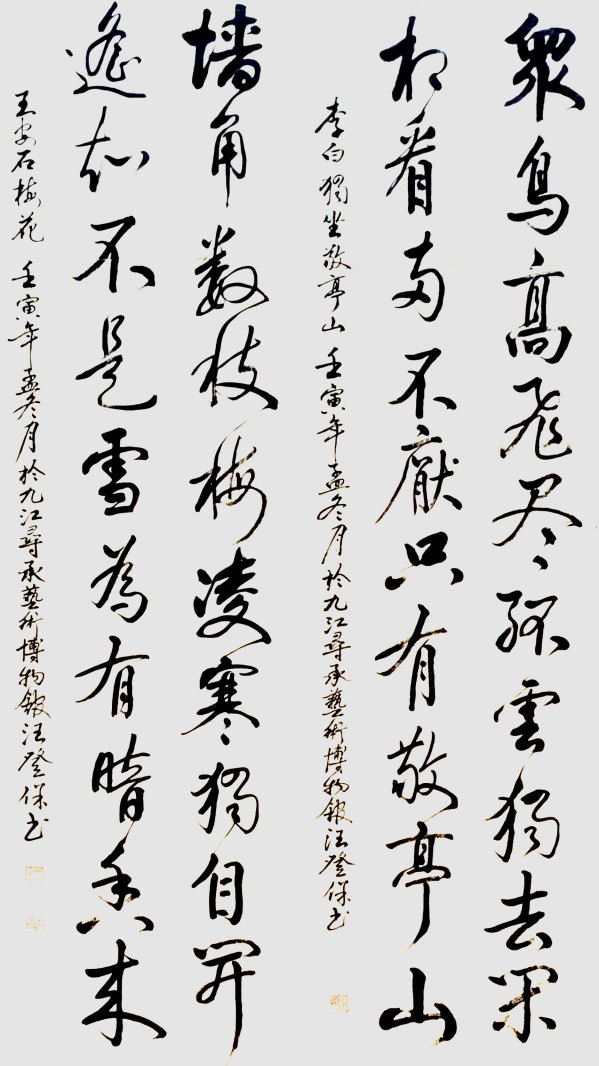 眾鳥高飛尽孤雲獨去閑
相看两不厭只有敬亭山
李白獨坐敬亭山 壬寅年孟冬月於九江尋承藝術博物館汪登保书
墙角数枝梅凌寒獨自開
遙知不是雪為有暗香来
王安石梅花 壬寅年孟冬月於九江尋承藝術博物館汪登保书